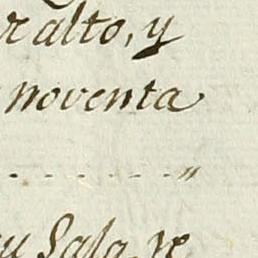 r alto, y
noventa
- - - - - - - "
su Sala, re